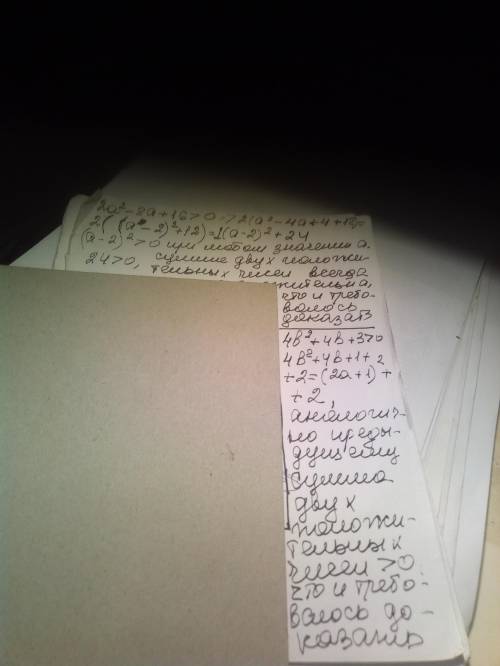 2a²-8a+16>0 ⇒ 2(a²-4a+4+12)=
2((a-2)²+12)=1(a-2)²+24
(a-2)²>0 при любом значении а.
24>0, сумме двух положи-
тельных чисел всегда
жительна,
что и требо-
валось
доказать
4b²+4b+3>0
4b²+4b+1+2
+2=(2a+1)+
+2,
аналогич-
но преды-
дущему
сумма
двух
положи-
тельных
чисел >0
что и требо-
валось до-
казать